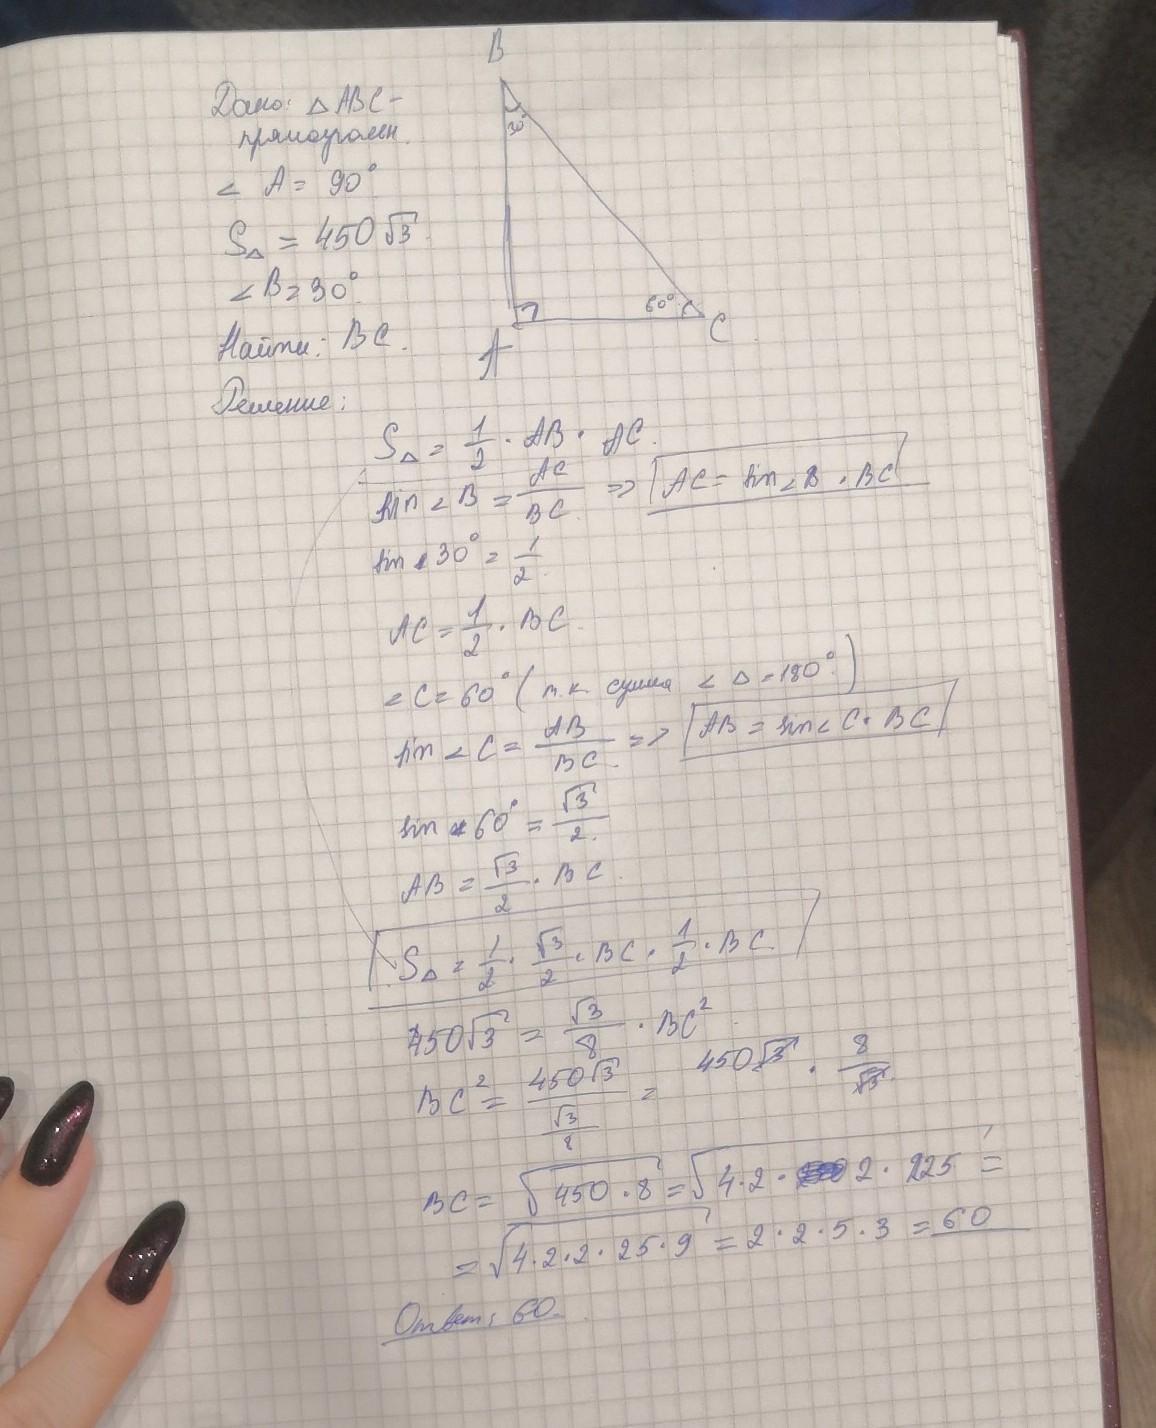 B
Дано: △ ABC -
прямоуголн.
30°
∠ A = 90°
S△ = 450√3
∠B = 30°
60°
C
Найти: BC.
A
Решение:
S△ = 1/2 · AB · AC.
sin ∠B = AC/BC => AC = sin∠B · BC
sin 30° = 1/2.
AC = 1/2 · BC.
∠C = 60° (т.к. сумма ∠ △ = 180°)
sin ∠C = AB/BC. => AB = sin∠C · BC
sin 60° = √3/2.
AB = √3/2 · BC.
S△ = 1/2 · √3/2 · BC · 1/2 · BC.
450√3 = √3/8 · BC²
BC² = 450√3/(√3/8) = 450√3 · 8/√3.
BC = √(450 · 8) = √(4·2· 2 · 225) =
= √(4·2·2·25·9) = 2·2·5·3 = 60
Ответ: 60.